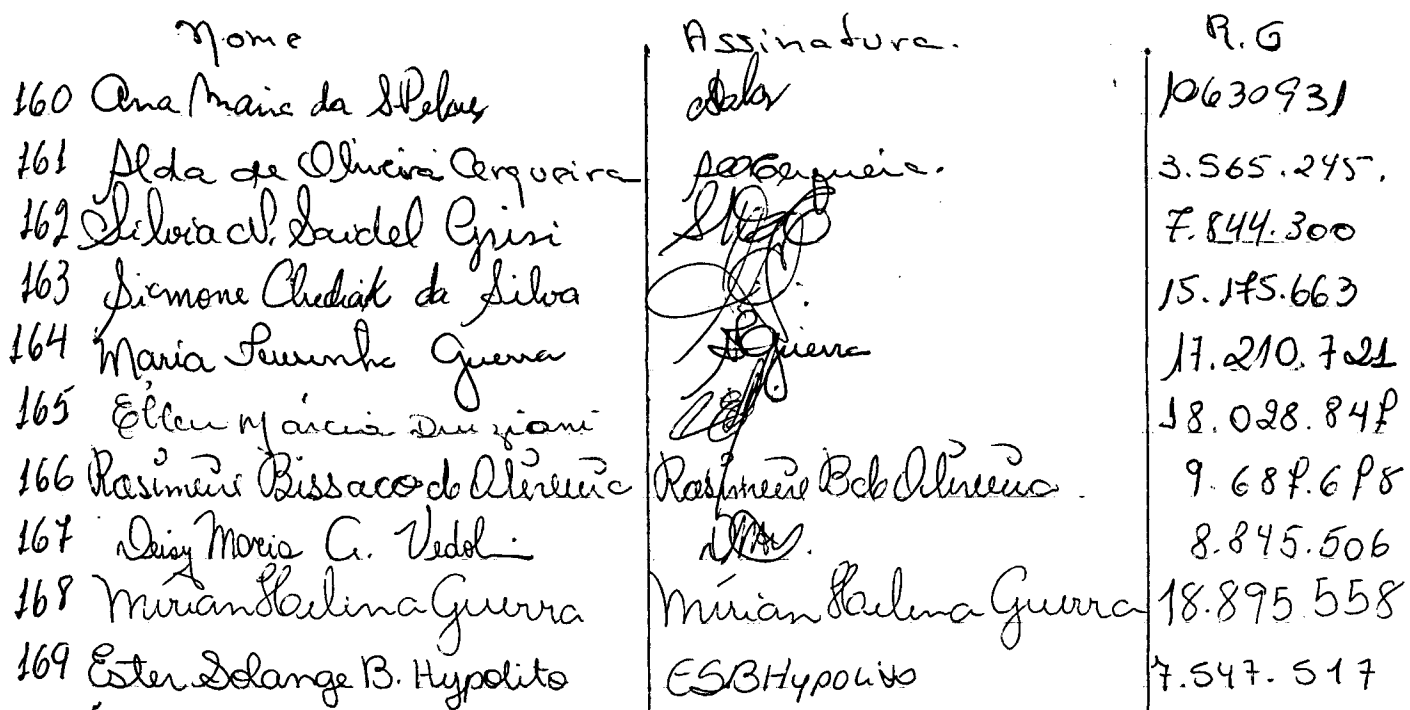 Nome Assinatura. R.G
160 Ana Maria da S. 10630931
161 Alda de Oliveira Cerqueira Cerqueira. 3.565.245.
162 Silvia N. Saidel Grisi 7.844.300
163 Simone Chediak da Silva 15.175.663
164 Maria Guerra Guerra 17.210.721
165 Ellen Márcia 18.028.847
166 Rosimeire Bissaco de Oliveira Rosimeire B de Oliveira. 9.687.678
167 Deisy Maria G. 8.845.506
168 Mírian Helena Guerra Mírian Helena Guerra 18.895.558
169 Ester Solange B. Hypolito ESBHypolito 7.547.517